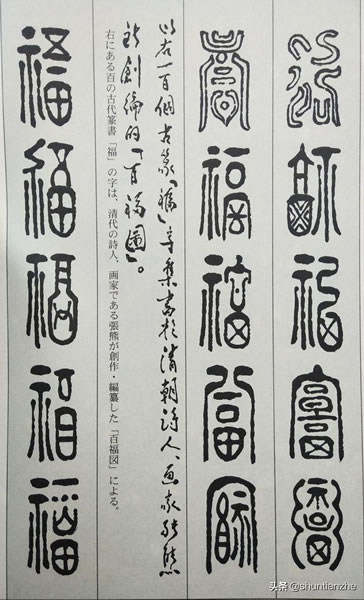 福福福福福
福福福福福
以右一百個古篆「福」字集書於清朝詩人、画家張熊
所創編的「百福圖」。
右にある百の古代篆書「福」の字は、清代の詩人、画家である張熊が創作・編纂した「百福図」による。
福福福福福
头条 @shuntianzhe